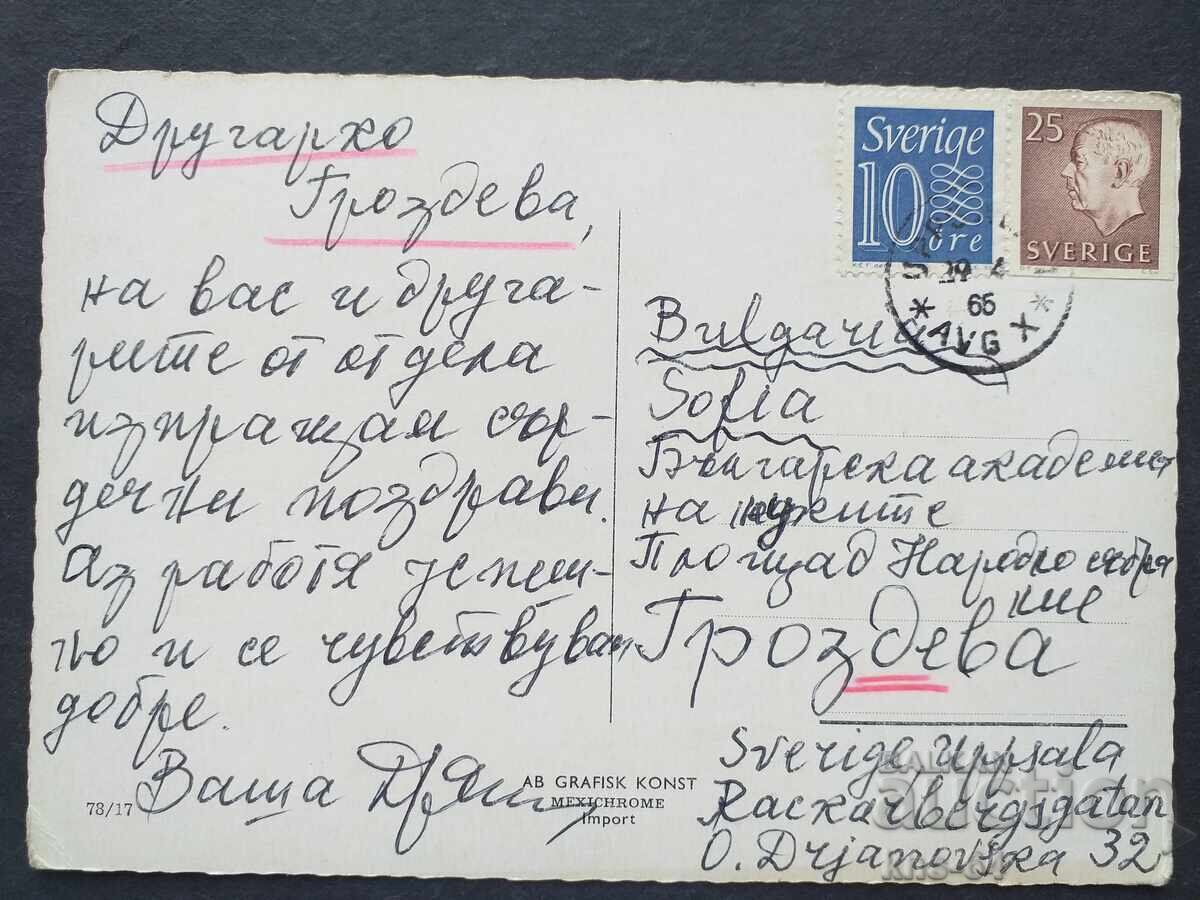 Другарко
Гроздева,
на вас и друга-
рите от отдела
изпращам сър-
дечни поздрави.
Аз работя успеш-
но и се чувствувам
добре.
Ваша
78/17
AB GRAFISK KONST
MEXICHROME
Import
Sverige
10
öre
25
SVERIGE
29
65
AVG X
Bulgaria
Sofia
Българска академия
на науките
Площад Народно събра
ние
Гроздева
Sverige Uppsala
Rackarbergsgatan
O. Drjanovska 32
BALKAN
auction